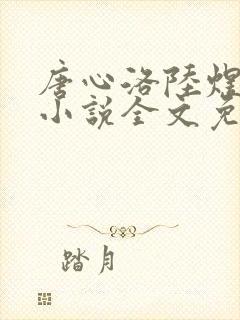 唐心洛陸煌
小說全文免
踏月